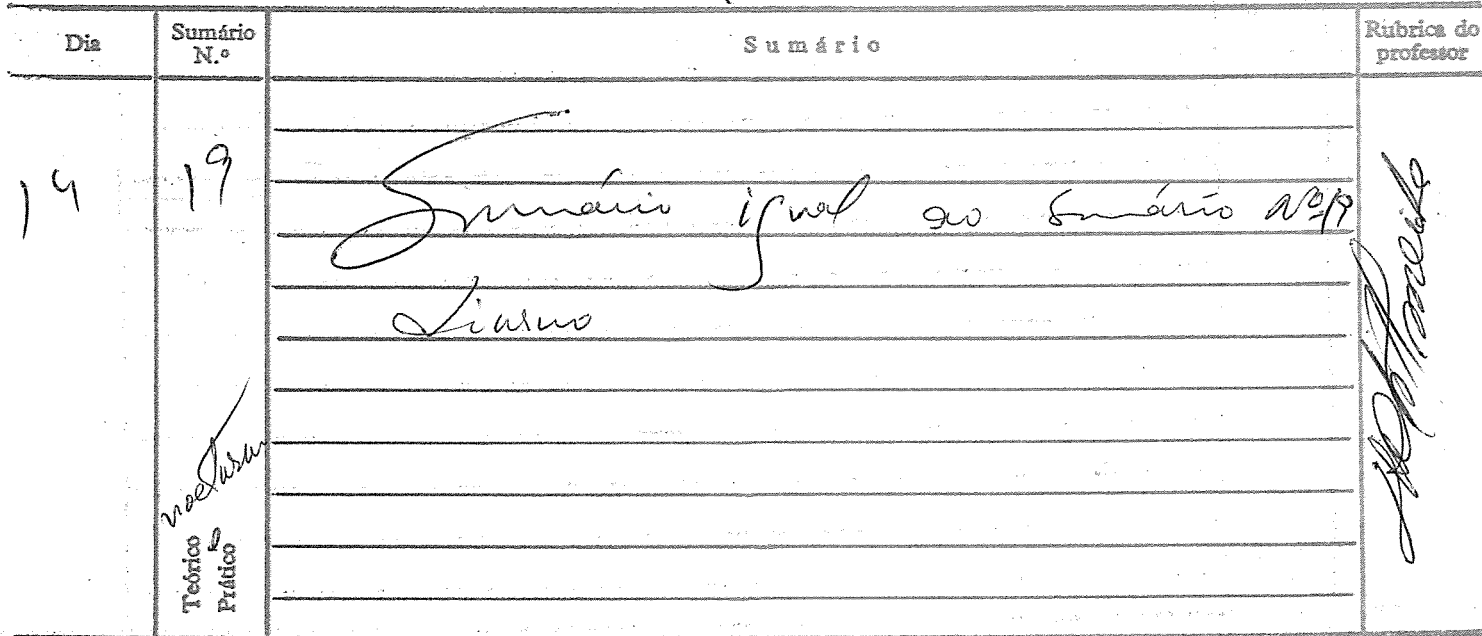 Dia
Sumário N.º
Sumário
Rubrica do professor
14
19
Sumário igual ao Sumário Nº19
Diurno
nocturno
Teórico
Prático